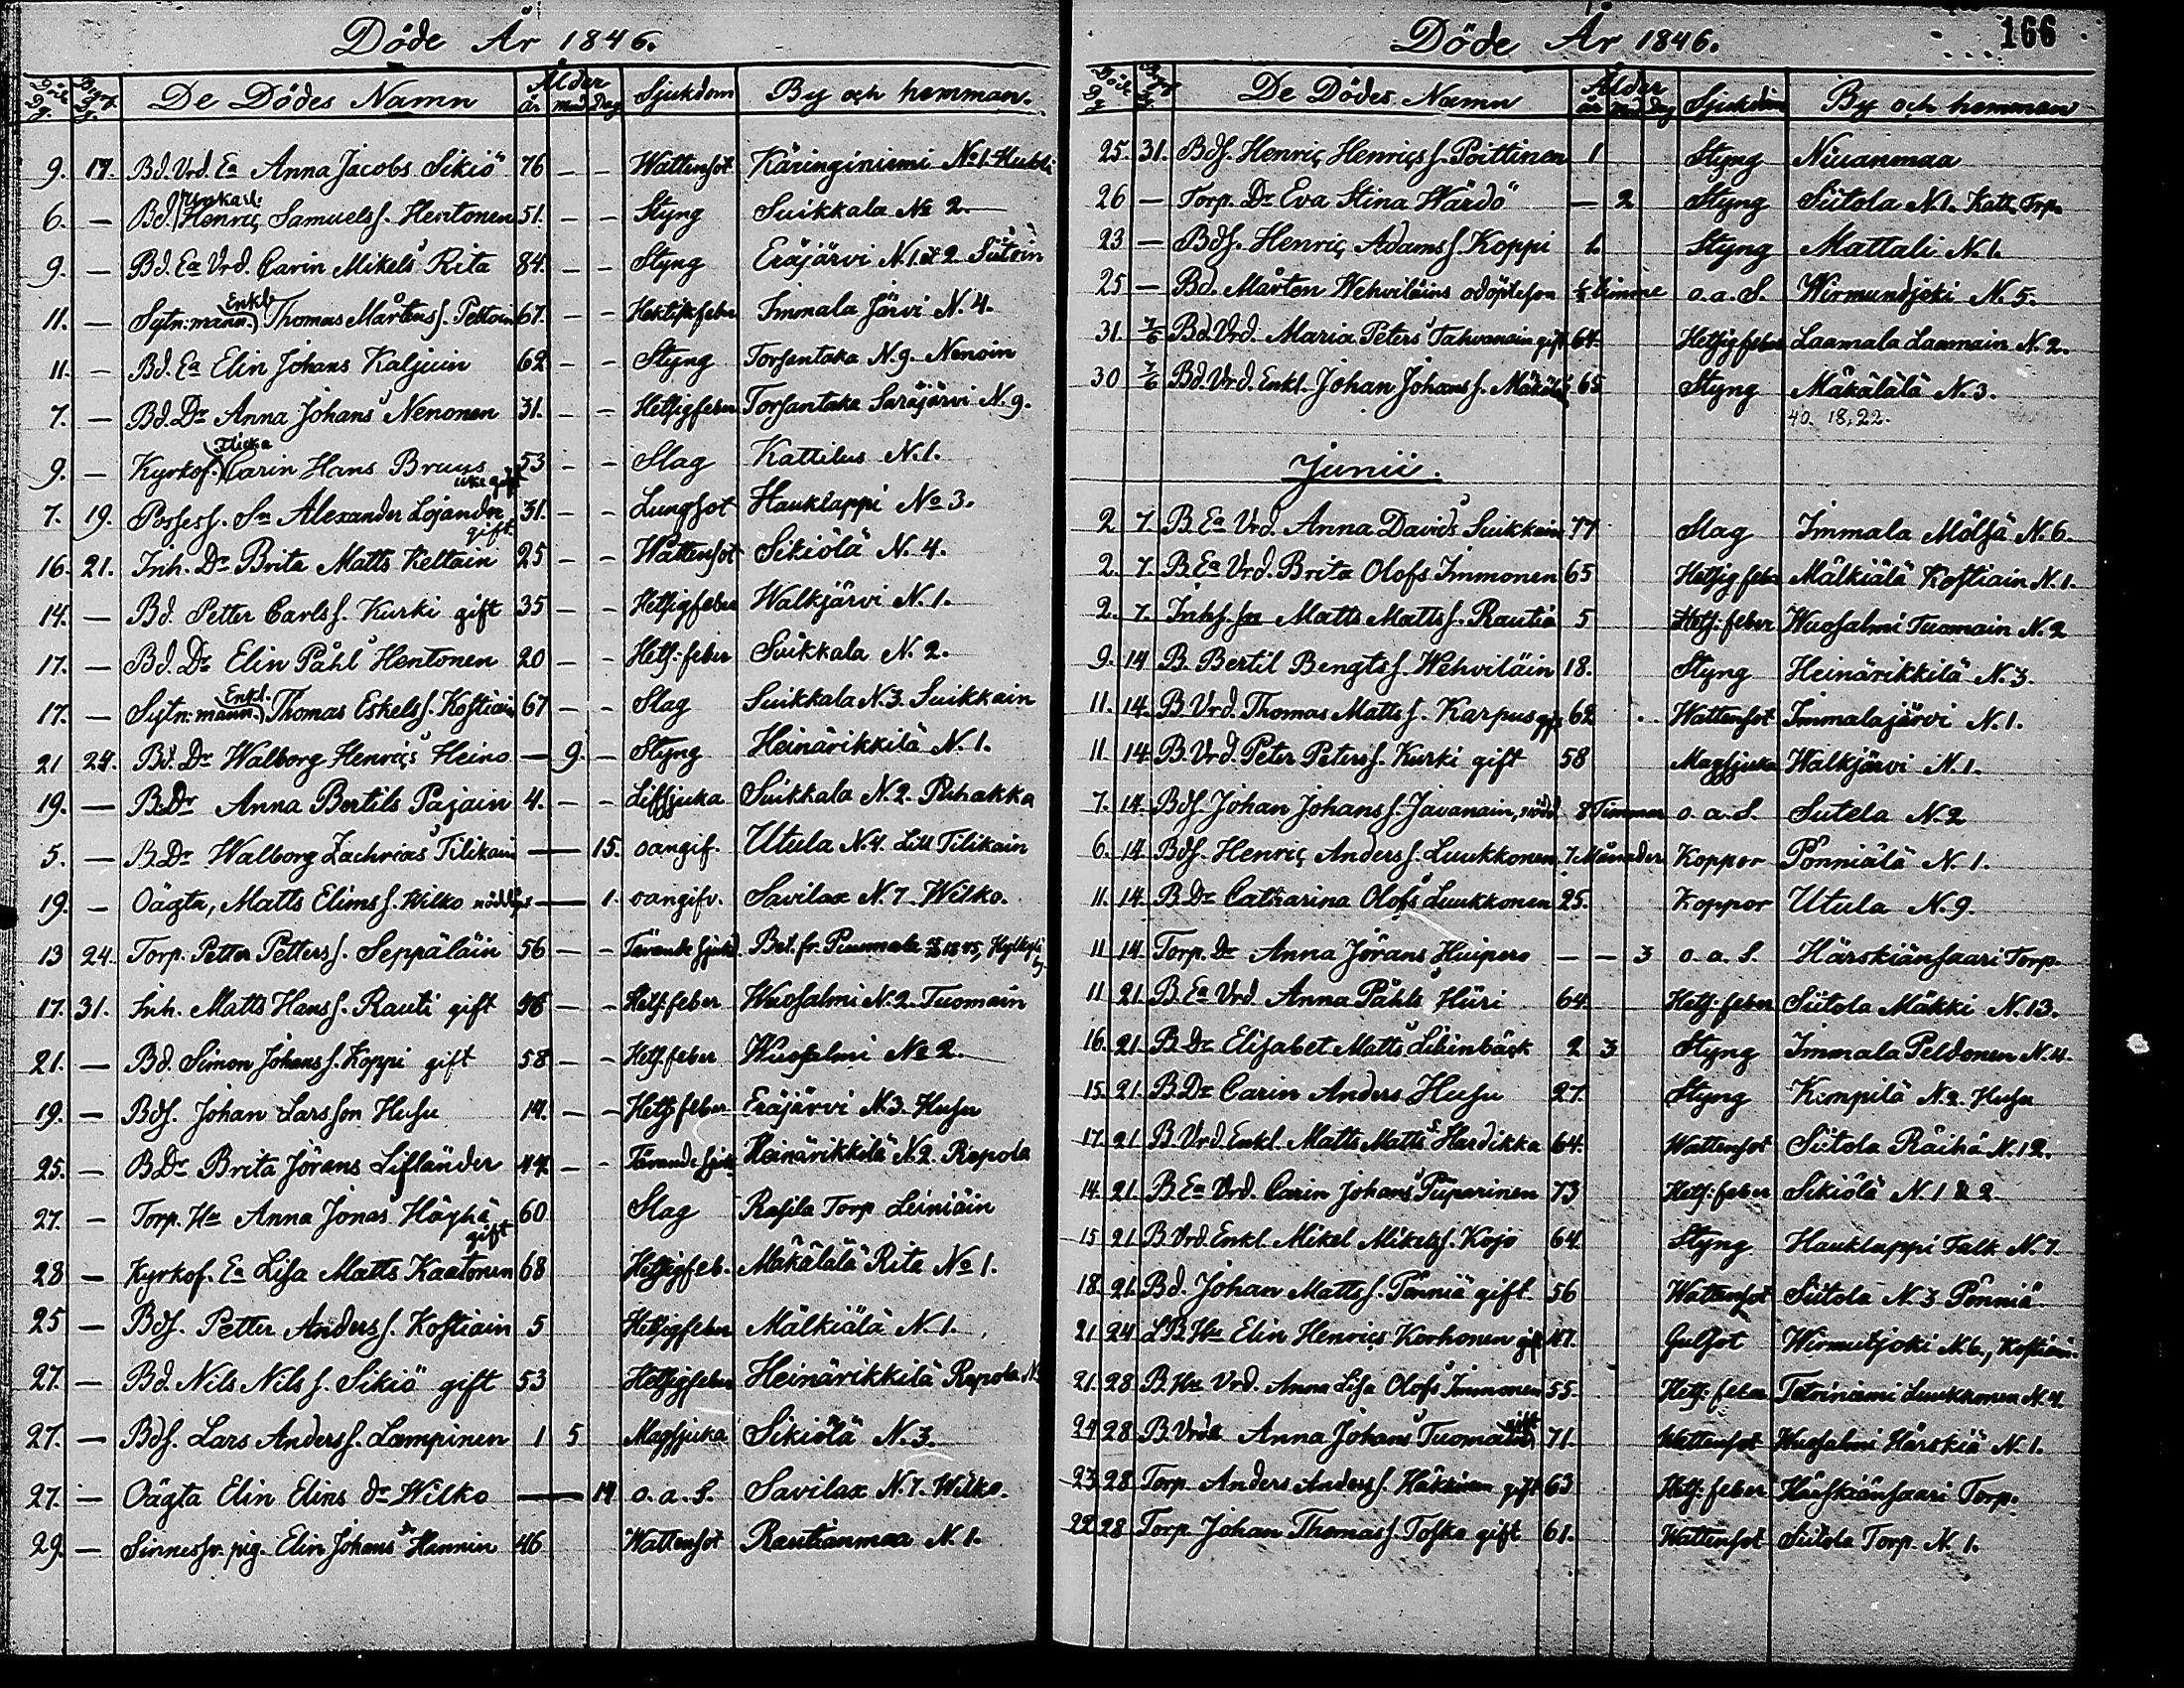 Döde År 1846.
Död Dg. Begr. Dg. De Dödes Namn Ålder år mnd dag Sjukdom By och hemman.
9. 17. Bd. Vrd. Ea Anna Jacobs Sikiö 76 — — Wattensot Käringiniemi No 1. Hukki
6. — Bd. Unkarl: Henriç Samuelss. Hentonen 51. — — Styng Suikkala No 2.
9. — Bd. Ea Vrd. Carin Mikels Rita 84. — — Styng Eräjärvi N. 1 et 2 Siitoin
11. — Sytn:mann. Enkl. Thomas Mårtenss. Peltoin 67. — — Hektiskfeber Immala Järvi N. 4.
11. — Bd. Ea Elin Johans Kaljuin 62 — — Styng Torsantaka N. 9. Nenoin
7. — Bd. Dr Anna Johans Nenonen 31. — — Hetsigfeber Torsantaka Saräjärvi N. 9.
9. — Kyrkof. Flicka Carin Hans Bruus icke gift 53 — — Slag Kattilus N. 1.
7. 19. Possess. Sn Alexander Lojander gift 31. — — Lungsot Hauklappi No 3.
16. 21. Inh. Dr Brita Matts Keltain 25 — — Wattensot Sikiölä N. 4.
14. — Bd. Petter Carlss. Kurki gift 35 — — Hetsigfeber Walkjärvi N. 1.
17. — Bd. Dr Elin Påhl Hentonen 20 — — Hets: feber Suikkala N. 2.
17. — Sytn:mann. Enkl. Thomas Eskelss. Kostiain 67 — — Slag Suikkala N. 3. Suikkain
21 24. Bd. Dr Walborg Henriçs Heino — 9. — Styng Heinärikkilä N. 1.
19. — B. Dr Anna Bertils Pajain 4. — — Lifsjuka Suikkala N. 2. Pihakka
5. — B. Dr Walborg Zachrias Tilikain — 15. oangif. Utula N. 4. Litt Tilikain
19. — Oägta, Matts Elinss. Wilko nöddöpt — 1. oangifv. Savilax N. 7. Wilko.
13 24. Torp. Petter Petterss. Seppäläin 56 — — Tärande sjukd. Bet. fr. Puumala 1845,
17. 31. Inh. Matts Hanss. Rauti gift 46 — — Hets: feber Wuosalmi N. 2. Tuomain
21. — Bd. Simon Johanss. Koppi gift 58 — — Hets feber Wuosalmi No 2.
19. — Bds. Johan Larsson Husu 14. — — Hets feber Eräjärvi N. 3. Husu
25. — B Dr Brita Jörans Lifländer 44. — — Tärande sjuk. Heinärikkilä N. 2. Repola
27. — Torp. Hu Anna Jonas Häyhä gift 60 Slag Rasila Torp Leiniäin
28 — Kyrkof. Ea Lisa Matts Kaatonen 68 Hetsigfeb. Mäkälälä Rita No 1.
25 — Bds. Petter Anderss. Kostiain 5 Hetsigfeber Mälkiälä N. 1.
27. — Bd. Nils Nilss. Sikiö gift 53 Hetsigfeber Heinärikkilä Repola N
27. — Bds. Lars Anderss. Lampinen 1 5 Magsjuka Sikiölä N. 3.
27. — Oägta Elin Elins dr Wilko — 14 o. a. S. Savilax N. 7. Wilko.
29. — Sinnessv. pig. Elin Johans dr Hannin 46 Wattensot Rautianmaa N. 1.
Döde År 1846.
166
Död Dg Begr Dg De Dödes Namn Ålder år md dag Sjukdom By och hemman
25. 31. Bds. Henriç Henriçss. Poittinen 1 Styng Niuanmaa
26 — Torp. Dr Eva Stina Wärdö — 2 Styng Siitola N. 1. Katt. Torp.
23 — Bds. Henriç Adamss. Koppi 1. Styng Mattali N. 1.
25 — Bd. Mårten Wehviläins odöpte son ½ timme o. a. S. Wirmundjoki N. 5.
31. 7/6 Bd. Vrd. Maria Peters Tahvanain gift 64. Hetsigfeber Laamala Lammain N. 2.
30 7/6 Bd. Vrd. Enkl. Johan Johanss. Mäkälä 65 Styng Mäkälälä N. 3.
40. 18, 22.
Junii.
2 7. B. Ea Vrd. Anna Davids Suikkain 77 Slag Immala Mölsä N. 6.
2. 7. B. Ea Vrd. Brita Olofs Immonen 65 Hetsig feber Mälkiälä Kostiain N. 1.
2. 7. Inhs. sn Matts Mattss. Rautia 5 Hets: feber Wuosalmi Tuomain N. 2
9. 14 B. Bertil Bengtss. Wehviläin 18. Styng Heinärikkilä N. 3.
11. 14. B. Vrd. Thomas Mattss. Karpus gift 62 Wattensot Immalajärvi N. 1.
11 14. B. Vrd. Peter Peterss. Kurki gift 58 Magsjuka Walkjärvi N. 1.
7. 14. Bds. Johan Johanss. Javanain, nödd 8 Timmar o. a. S. Sutela N. 2
6. 14. Bds. Henriç Anderss. Luukkonen 7 Månader Koppor Pönniälä N. 1.
11. 14. B. Dr Catharina Olofs Luukkonen 25. Koppor Utula N. 9.
11 14. Torp. Dr Anna Jörans Huipero — — 3 o. a. S. Härskiänsaari Torp.
11 21. B. Ea Vrd Anna Påhls Hiiri 64. Hets: feber Siitola Mäkki N. 13.
16. 21. B. Dr Elisabet Matts Lihinbäck 2 3 Styng Immala Peldonen N. 4.
15. 21. B. Dr Carin Anders Husu 27. Styng Kimpilä N. 2. Husu
17. 21 B Vrd. Enkl. Matts Matts s. Hardikka 64. Wattensot Siitola Räihä N. 12.
14. 21. B. Ea Vrd. Carin Johans Piiparinen 73 Hets: feber Sikiölä N. 1 & 2.
15 21. B. Vrd. Enkl. Mikel Mikelss. Kojo 64. Styng Hauklappi Falk N. 7.
18. 21. Bd. Johan Mattss. Pönniä gift 56 Wattensot Siitola N. 3 Pönniä.
21. 24. LB. Hu Elin Henriçs Korhonen gift 47. Gulsot Wirmutjoki N. 6., Kostiain.
21. 28. B. Hu Vrd. Anna Lisa Olofs Immonen 55. Hets: feber Tetriniemi Luukkonen N. 4.
24 28. B. Vrd Anna Johans Tuomain gift 71. Wattensot Wuosalmi Härskiä N. 1.
23. 28. Torp. Anders Anderss. Häkkinen gift 63 Hets: feber Härskiänsaari Torp.
22 28. Torp. Johan Thomass. Toska gift 61. Wattensot Siitola Torp. N. 1.